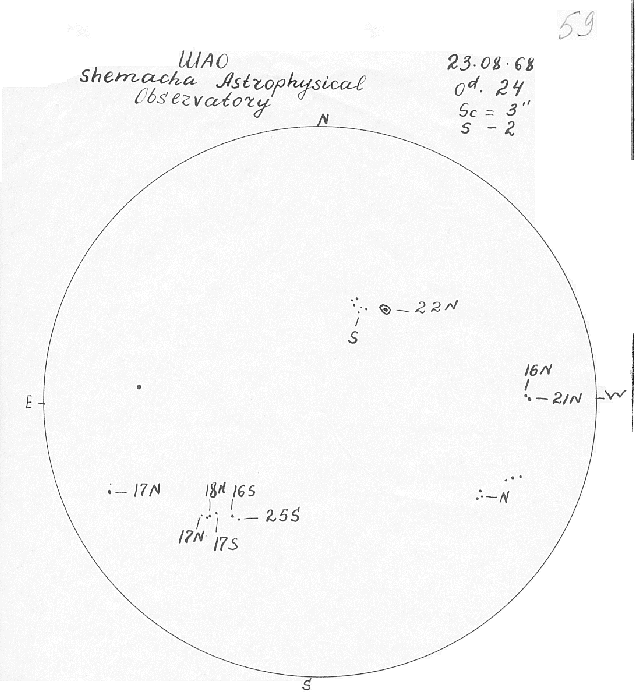 59
ШАО
Shemacha Astrophysical
Observatory
23.08.68
Od. 24
Sc = 3"
S - 2
N
22N
S
16N
E
21N
W
17N
18N 16S
N
25S
17N
17S
S